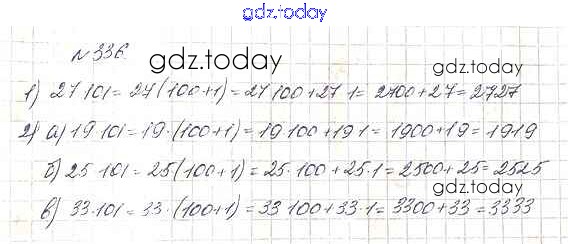 gdz.today
№ 336
gdz.today
gdz.today
1) 27 101 = 27 (100+1) = 27 100 + 27 1 = 2700 + 27 = 2727
2) а) 19 101 = 19 · (100+1) = 19 100 + 19 1 = 1900 + 19 = 1919
б) 25 · 101 = 25 (100 + 1) = 25 · 100 + 25 · 1 = 2500 + 25 = 2525
gdz.today
в) 33 · 101 = 33 · (100+1) = 33 100 + 33 · 1 = 3300 + 33 = 3333